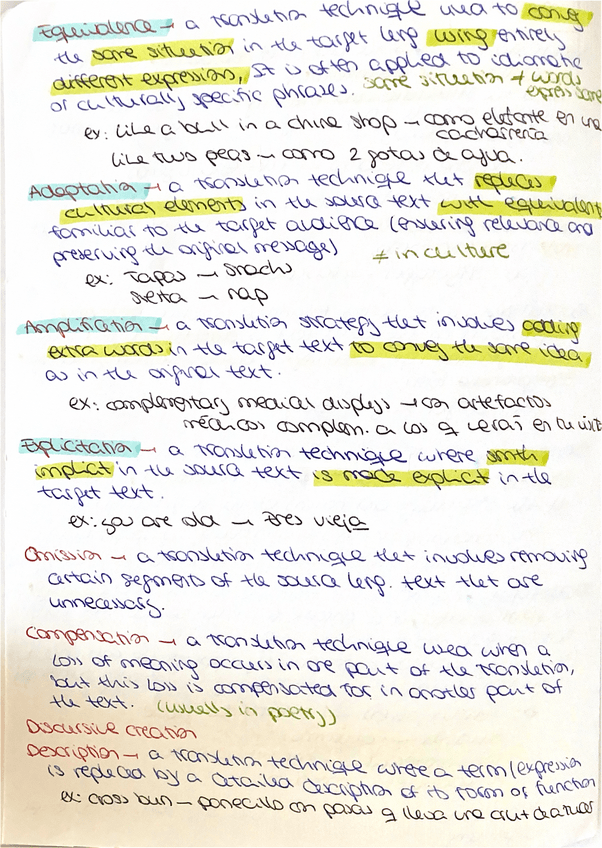 Equivalence → a translation technique used to convey
the same situation in the target lang using entirely
different expression, It is often applied to idiomatic
or culturally specific phrases. same situation ≠ words
express same
ex: like a bull in a china shop → como elefante en una
cacharrería
like two peas → como 2 gotas de agua.
Adaptation → a translation technique that replaces
cultural elements in the source text with equivalent
familiar to the target audience (ensuring relevance and
preserving the original message)
≠ in culture
ex: Tapas → snacks
siesta → nap
Amplification → a translation strategy that involves adding
extra words in the target text to convey the same idea
as in the original text.
ex: complementary medical displays → con artefactos
médicos complem. a los q verai en tu visit
Explicitation → a translation technique where smth
implicit in the source text is made explicit in the
target text.
ex: you are old → Eres vieja
Omission → a translation technique that involves removing
certain segments of the source lang. text that are
unnecessary.
Compensation → a translation technique used when a
loss of meaning occurs in one part of the translation,
but this loss is compensated for in another part of
the text. (usually in poetry)
Discursive creation
Description → a translation technique where a term/expression
is replaced by a detailed description of its form or function
ex: cross bun → panecillo con pasas q lleva una cruz de azúcar